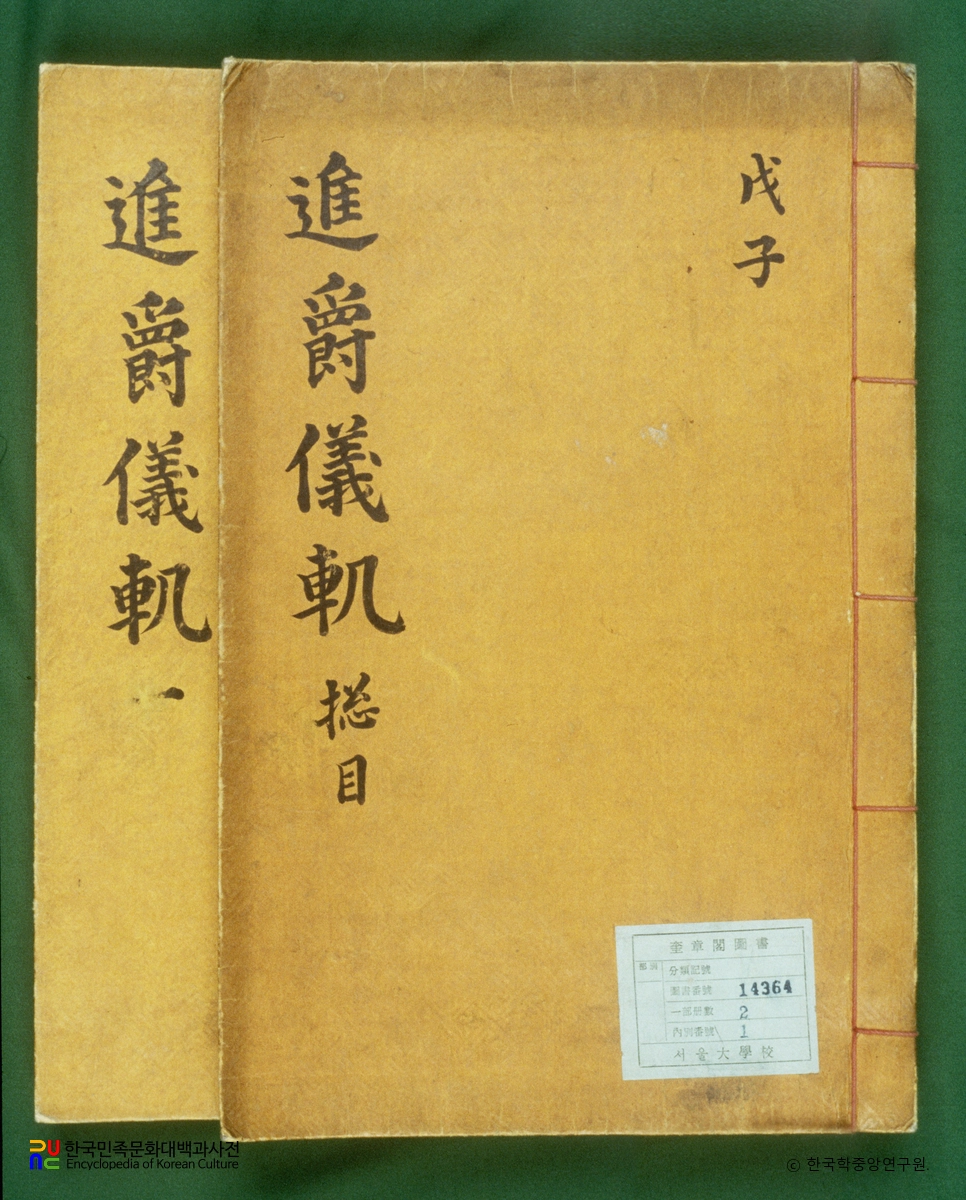 戊子
進爵儀軌 捴目
進爵儀軌 一
奎章閣圖書
分類記號
圖書番號 14364
一部冊數 2
內別番號 1
서울大學校
한국민족문화대백과사전
Encyclopedia of Korean Culture
© 한국학중앙연구원